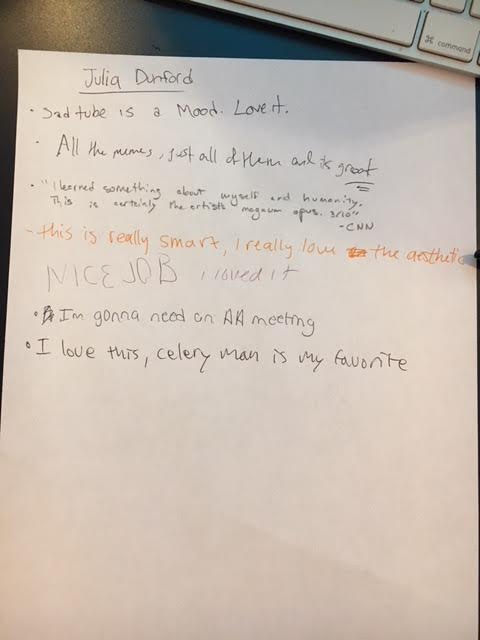 ⌘ command
Julia Dunford
• Sad tube is a Mood. Love it.
• All the memes, just all of them and is great
• "I learned something about myself and humanity.
This is certainly the artists magnum opus. 3/10"
-CNN
- this is really smart, I really love the aesthetic
NICE JOB I loved it
• I'm gonna need an AA meeting
• I love this, celery man is my favorite